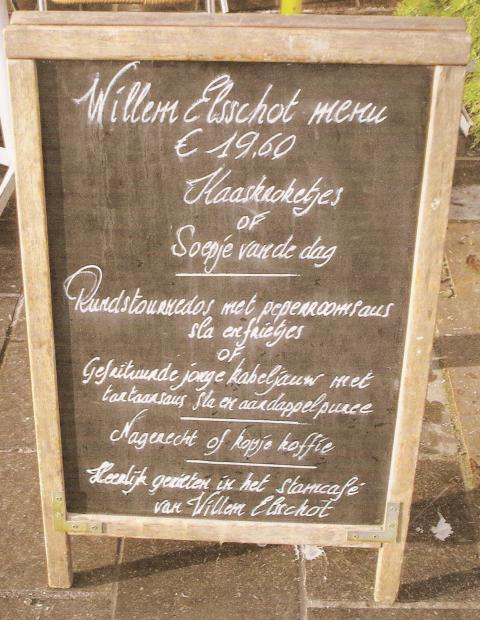 Willem Elsschot menu
€ 19,60
Kaaskroketjes
of
Soepje van de dag
Rundstournedos met peperroomsaus
sla en frietjes
OF
Gefrituurde jonge kabeljauw met
tartaarsaus sla en aardappelpuree
Nagerecht of kopje koffie
Heerlijk genieten in het stamcafé
van Willem Elsschot